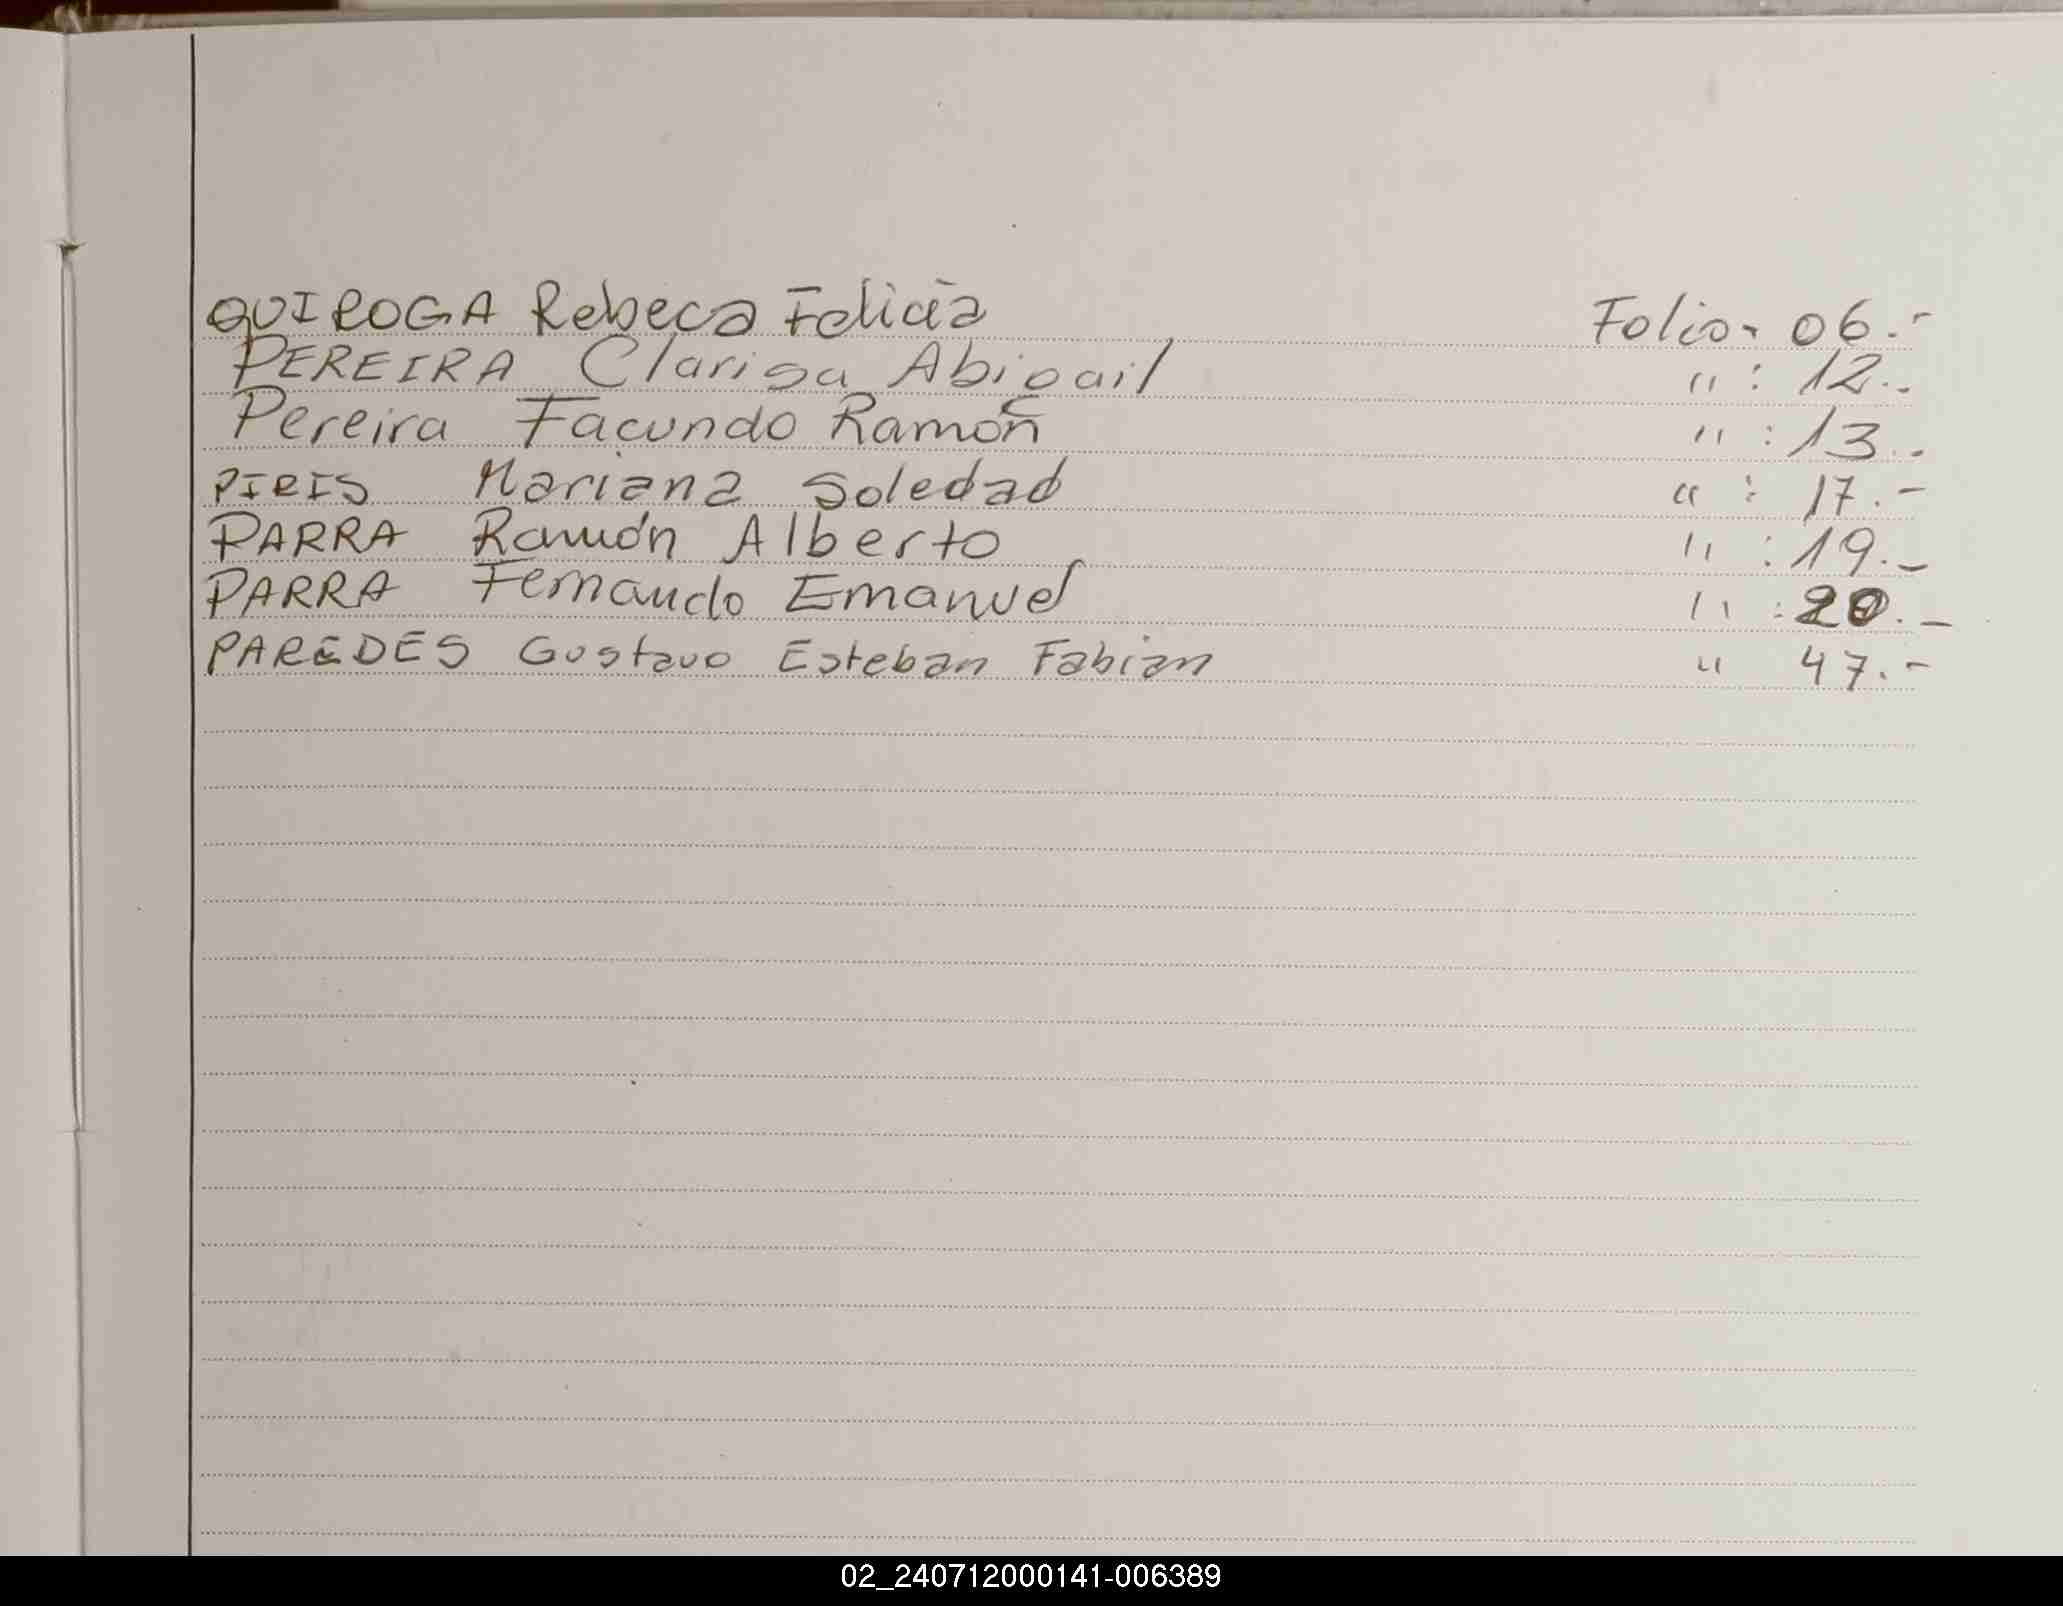 QUIROGA Rebeca Felicia Folio. 06.-
PEREIRA Clarisa Abigail " : 12.-
Pereira Facundo Ramón " : 13.-
PIRIS Mariana Soledad " : 17.-
PARRA Ramón Alberto " : 19.-
PARRA Fernando Emanuel " : 20.-
PAREDES Gustavo Esteban Fabian " 47.-
02_240712000141-006389